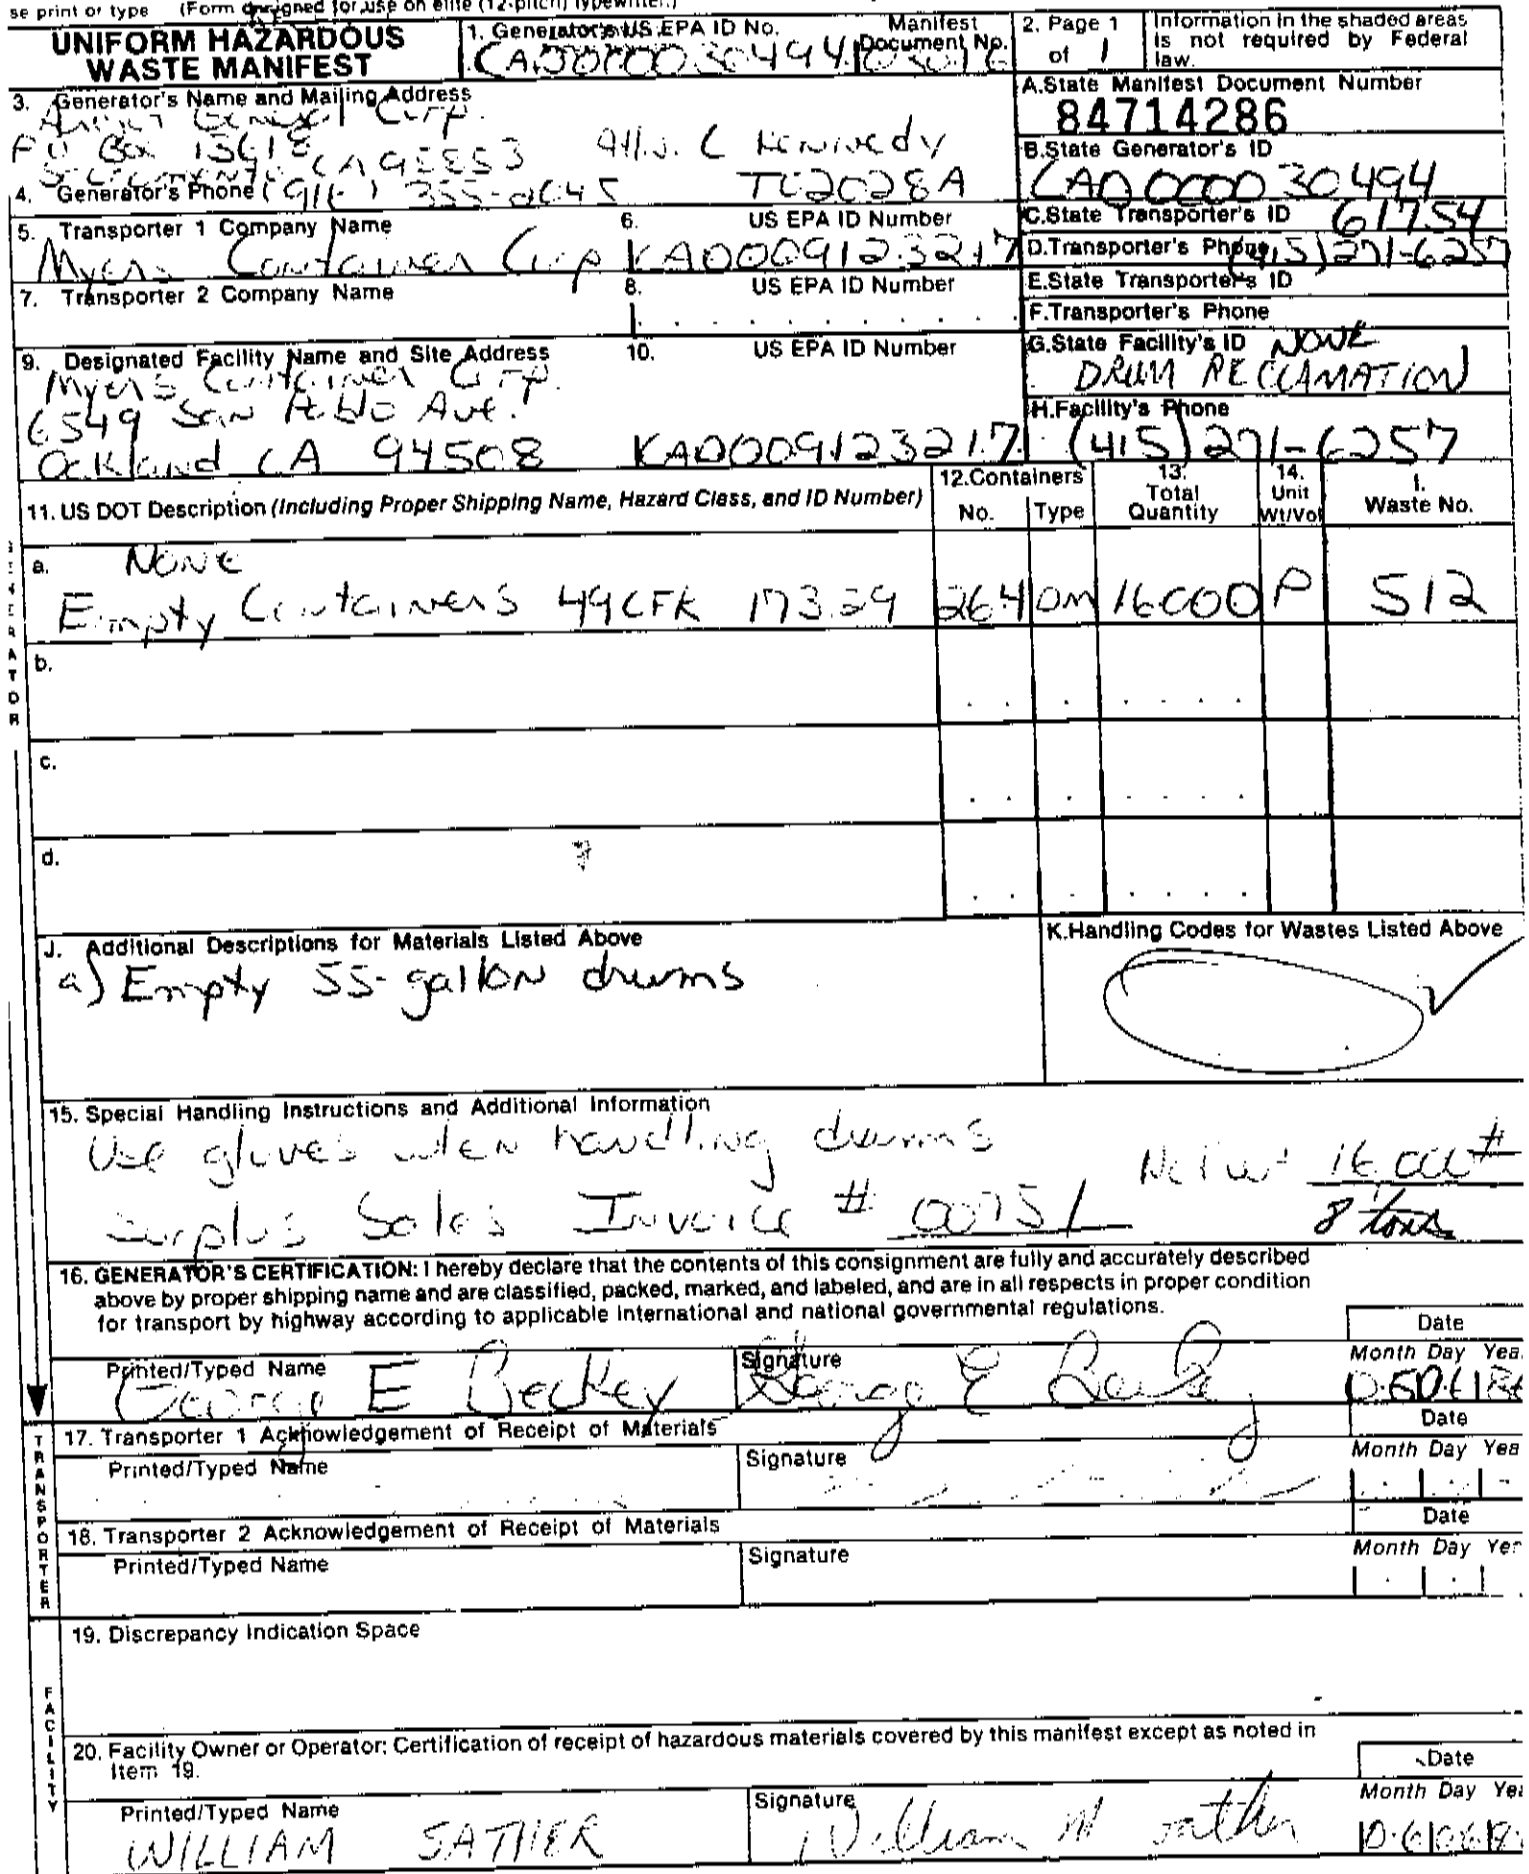 se print or type (Form designed for use on elite (12-pitch) typewriter.)
UNIFORM HAZARDOUS WASTE MANIFEST
1. Generator's US EPA ID No.
CAD000030494
Manifest Document No.
2. Page 1 of 1
Information in the shaded areas is not required by Federal law.
3. Generator's Name and Mailing Address
General Corp.
PO Box 13618
CA 95853 Attn. C Kennedy
4. Generator's Phone (916) 355-2645 TC2028A
A.State Manifest Document Number
84714286
B.State Generator's ID
CAD000030494
5. Transporter 1 Company Name
Myers Container Corp
6. US EPA ID Number
CAD009123217
C.State Transporter's ID 61754
D.Transporter's Phone (415)271-6257
7. Transporter 2 Company Name
8. US EPA ID Number
E.State Transporter's ID
F.Transporter's Phone
9. Designated Facility Name and Site Address
Myers Container Corp.
6549 San Pablo Ave.
Oakland CA 94508
10. US EPA ID Number
CAD009123217
G.State Facility's ID NONE
DRUM RECLAMATION
H.Facility's Phone
(415)271-6257
11. US DOT Description (Including Proper Shipping Name, Hazard Class, and ID Number)
12.Containers
No. Type
13. Total Quantity
14. Unit Wt/Vol
I. Waste No.
GENERATOR
a. NONE
Empty Containers 49CFR 173.29 264 DM 16000 P 512
b.
c.
d.
J. Additional Descriptions for Materials Listed Above
a) Empty 55-gallon drums
K.Handling Codes for Wastes Listed Above
15. Special Handling Instructions and Additional Information
Use gloves when handling drums
Net wt 16,000#
Surplus Sales Invoice # 00751
8 tons
16. GENERATOR'S CERTIFICATION: I hereby declare that the contents of this consignment are fully and accurately described
above by proper shipping name and are classified, packed, marked, and labeled, and are in all respects in proper condition
for transport by highway according to applicable international and national governmental regulations.
Date
Printed/Typed Name
George E Beckey
Signature
George E
Month Day Yea
TRANSPORTER
17. Transporter 1 Acknowledgement of Receipt of Materials
Date
Printed/Typed Name
Signature
Month Day Yea
18. Transporter 2 Acknowledgement of Receipt of Materials
Date
Printed/Typed Name
Signature
Month Day Yea
FACILITY
19. Discrepancy Indication Space
20. Facility Owner or Operator: Certification of receipt of hazardous materials covered by this manifest except as noted in
Item 19.
Date
Printed/Typed Name
WILLIAM SATHER
Signature
William M Sather
Month Day Yea